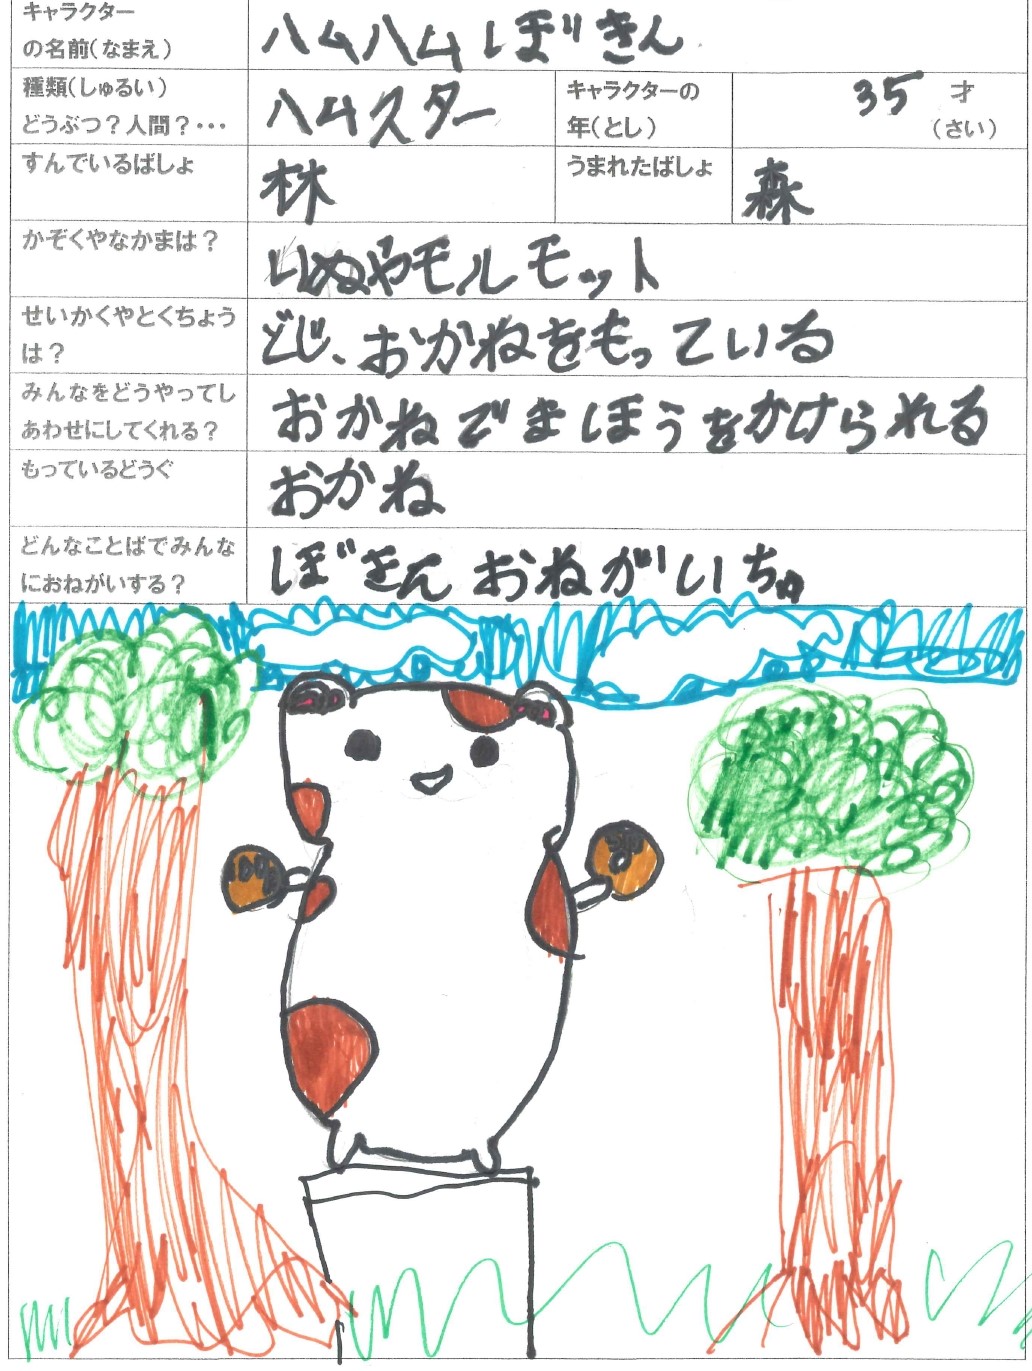 キャラクター
の名前(なまえ)
ハムハムぼきん
種類(しゅるい)
どうぶつ？人間？・・・
ハムスター
キャラクターの
年(とし)
35 才
(さい)
すんでいるばしょ
林
うまれたばしょ
森
かぞくやなかまは？
いぬやモルモット
せいかくやとくちょう
は？
どじ、おかねをもっている
みんなをどうやってし
あわせにしてくれる？
おかねでまほうをかけられる
もっているどうぐ
おかね
どんなことばでみんな
におねがいする？
ぼきんおねがいちゅ